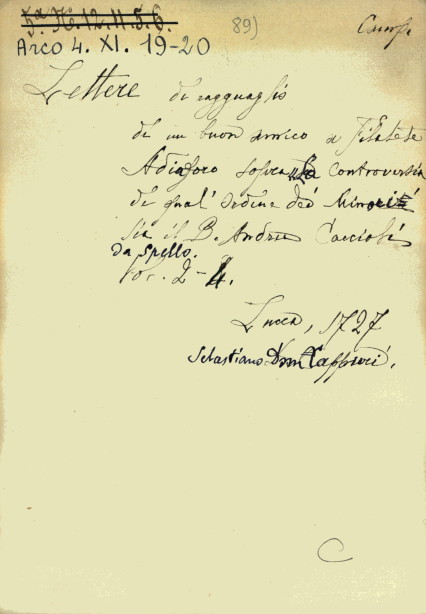 5ª H. 12. 11. 5. 6.
89)
Arco 4. XI. 19-20
Lettere di ragguaglio
di un buon amico a Filalete
Adiaforo sopra la controversia
di qual' Ordine dei Minori
sia il B. Andrea Caccioli
da Spello.
Vol. 2-4.
Lucca, 1727
Sebastiano Dom. Cappuri.
C